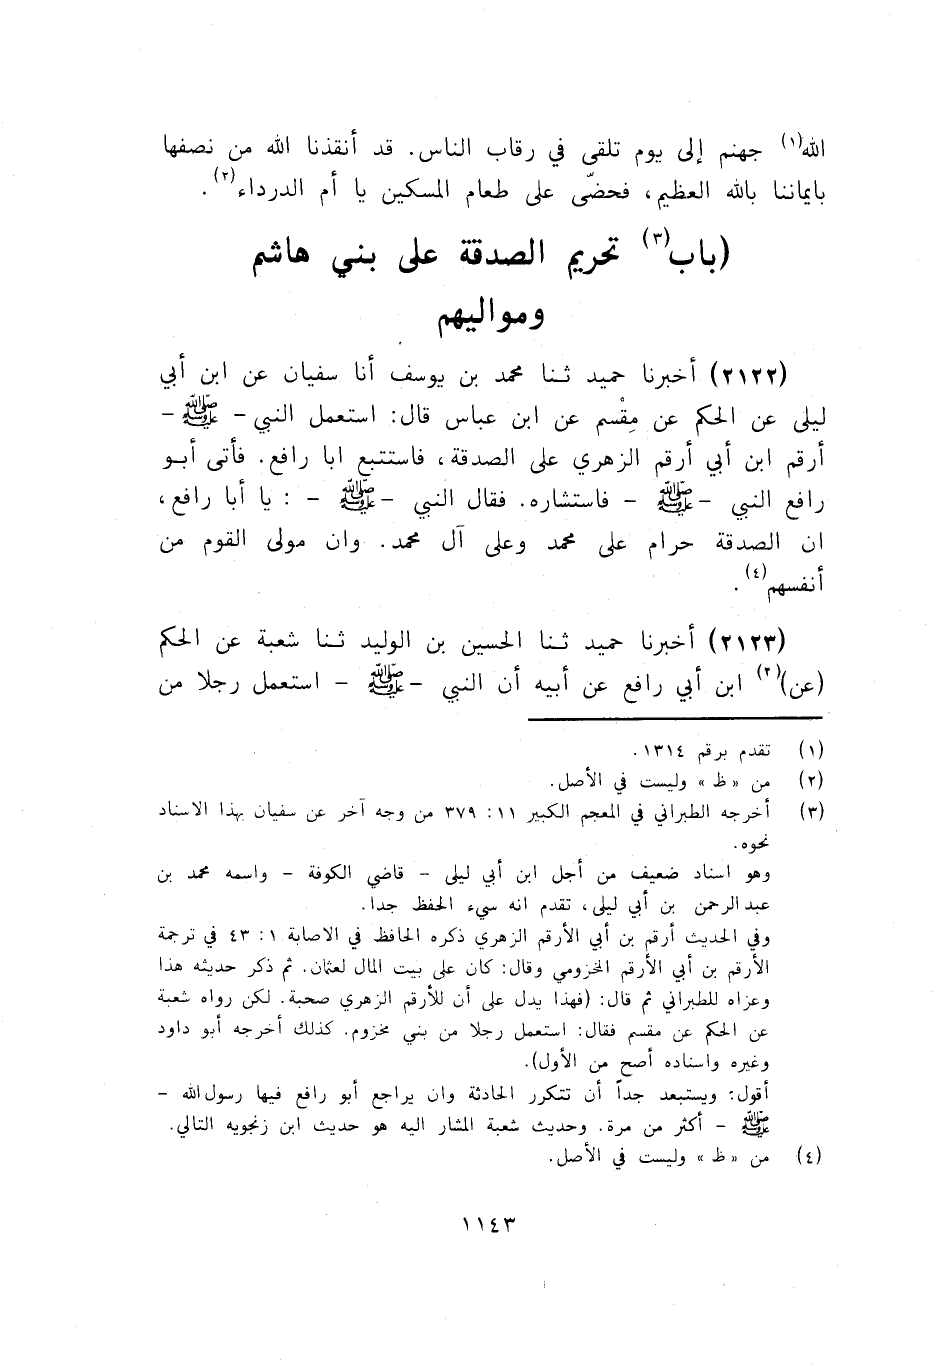 الله(١) جهنم إلى يوم تلقى في رقاب الناس. قد أنقذنا الله من نصفها
بايماننا بالله العظيم، فحضّى على طعام المسكين يا أم الدرداء(٢).
(باب(٣) تحريم الصدقة على بني هاشم
ومواليهم
(٢١٢٢) أخبرنا حميد ثنا محمد بن يوسف أنا سفيان عن ابن أبي
ليلى عن الحكم عن مِقْسم عن ابن عباس قال: استعمل النبي - ﷺ -
أرقم ابن أبي أرقم الزهري على الصدقة، فاستتبع ابا رافع. فأتى أبو
رافع النبي - ﷺ - فاستشاره. فقال النبي - ﷺ - : يا أبا رافع،
ان الصدقة حرام على محمد وعلى آل محمد. وان مولى القوم من
أنفسهم(٤).
(٢١٢٣) أخبرنا حميد ثنا الحسين بن الوليد ثنا شعبة عن الحكم
(عن)(٢) ابن أبي رافع عن أبيه أن النبي - ﷺ - استعمل رجلا من
(١) تقدم برقم ١٣١٤.
(٢) من « ظ » وليست في الأصل.
(٣) أخرجه الطبراني في المعجم الكبير ١١: ٣٧٩ من وجه آخر عن سفيان بهذا الاسناد
نحوه.
وهو اسناد ضعيف من أجل ابن أبي ليلى - قاضي الكوفة - واسمه محمد بن
عبدالرحمن بن أبي ليلى، تقدم انه سيء الحفظ جدا.
وفي الحديث أرقم بن أبي الأرقم الزهري ذكره الحافظ في الاصابة ١: ٤٣ في ترجمة
الأرقم بن أبي الأرقم المخزومي وقال: كان على بيت المال لعثمان. ثم ذكر حديثه هذا
وعزاه للطبراني ثم قال: (فهذا يدل على أن للأرقم الزهري صحبة. لكن رواه شعبة
عن الحكم عن مقسم فقال: استعمل رجلا من بني مخزوم. كذلك أخرجه أبو داود
وغيره واسناده أصح من الأول).
أقول: ويستبعد جداً أن تتكرر الحادثة وان يراجع أبو رافع فيها رسول الله -
ﷺ - أكثر من مرة. وحديث شعبة المشار اليه هو حديث ابن زنجويه التالي.
(٤) من « ظ » وليست في الأصل.
١١٤٣